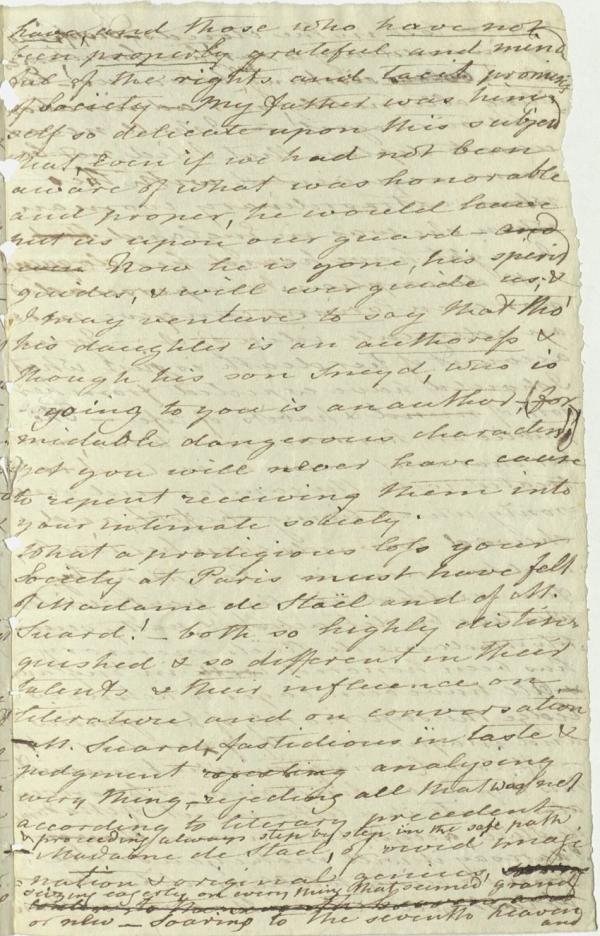 have, and those who have not
been properly grateful and mind
ful of the rights and tacit promises
of society – My father was him
self so delicate upon this subject
that, even if we had not been
aware of what was honorable
and proper, he would have
put us upon our guard – and
even Now he is gone, his spirit
guides, & will ever guide us, &
I may venture to say that tho'
his daughter is an authoress &
though his son Sneyd, who is
going to you is an author, (for
midable dangerous characters)
yet you will never have cause
to repent receiving them into
your intimate society.
What a prodigious loss your
Society at Paris must have felt
of Madame de Staël and of M.
Suard! – both so highly distin-
guished & so different in their
talents & their influence on
literature and on conversation
– M. Suard, fastidious in taste &
judgment rejecting analysing
every thing – rejecting all that was not
according to literary precedent
& proceeding always step by step in the safe path
– Madame de Stael, of vivid imagi
nation & original genius,
seizing eagerly on every thing that seemed grand
or new – Soaring to the seventh heaven
and